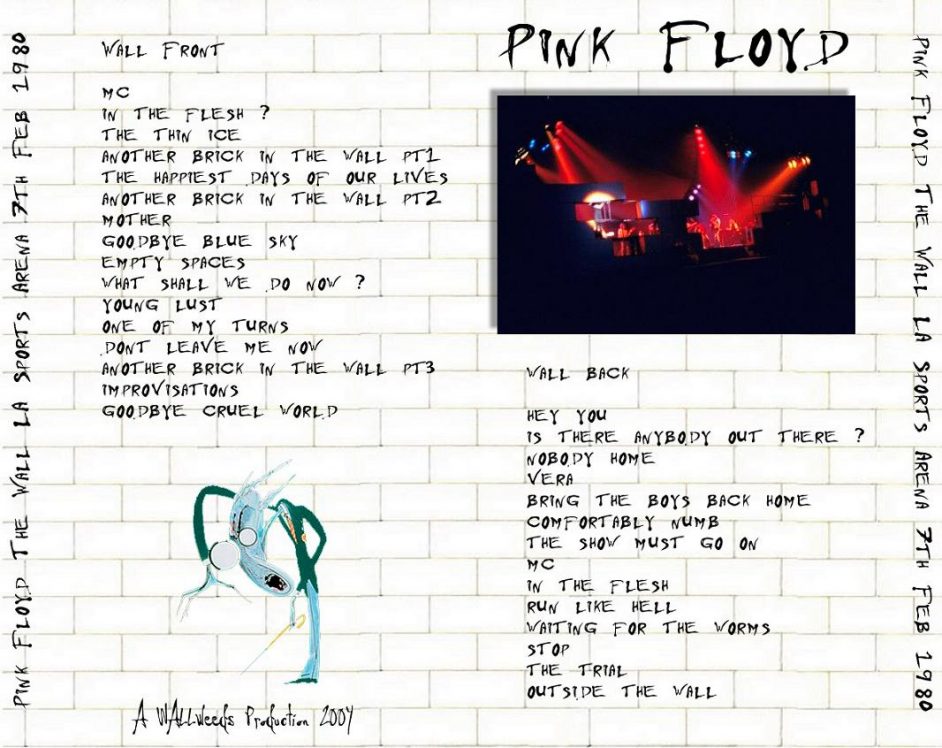 PINK FLOYD THE WALL LA SPORTS ARENA 7TH FEB 1980
WALL FRONT
MC
IN THE FLESH ?
THE THIN ICE
ANOTHER BRICK IN THE WALL PT1
THE HAPPIEST DAYS OF OUR LIVES
ANOTHER BRICK IN THE WALL PT2
MOTHER
GOODBYE BLUE SKY
EMPTY SPACES
WHAT SHALL WE DO NOW ?
YOUNG LUST
ONE OF MY TURNS
DONT LEAVE ME NOW
ANOTHER BRICK IN THE WALL PT3
IMPROVISATIONS
GOODBYE CRUEL WORLD
A WALLweeds Production 2004
PINK FLOYD
WALL BACK
HEY YOU
IS THERE ANYBODY OUT THERE ?
NOBODY HOME
VERA
BRING THE BOYS BACK HOME
COMFORTABLY NUMB
THE SHOW MUST GO ON
MC
IN THE FLESH
RUN LIKE HELL
WAITING FOR THE WORMS
STOP
THE TRIAL
OUTSIDE THE WALL
PINK FLOYD THE WALL LA SPORTS ARENA 7TH FEB 1980